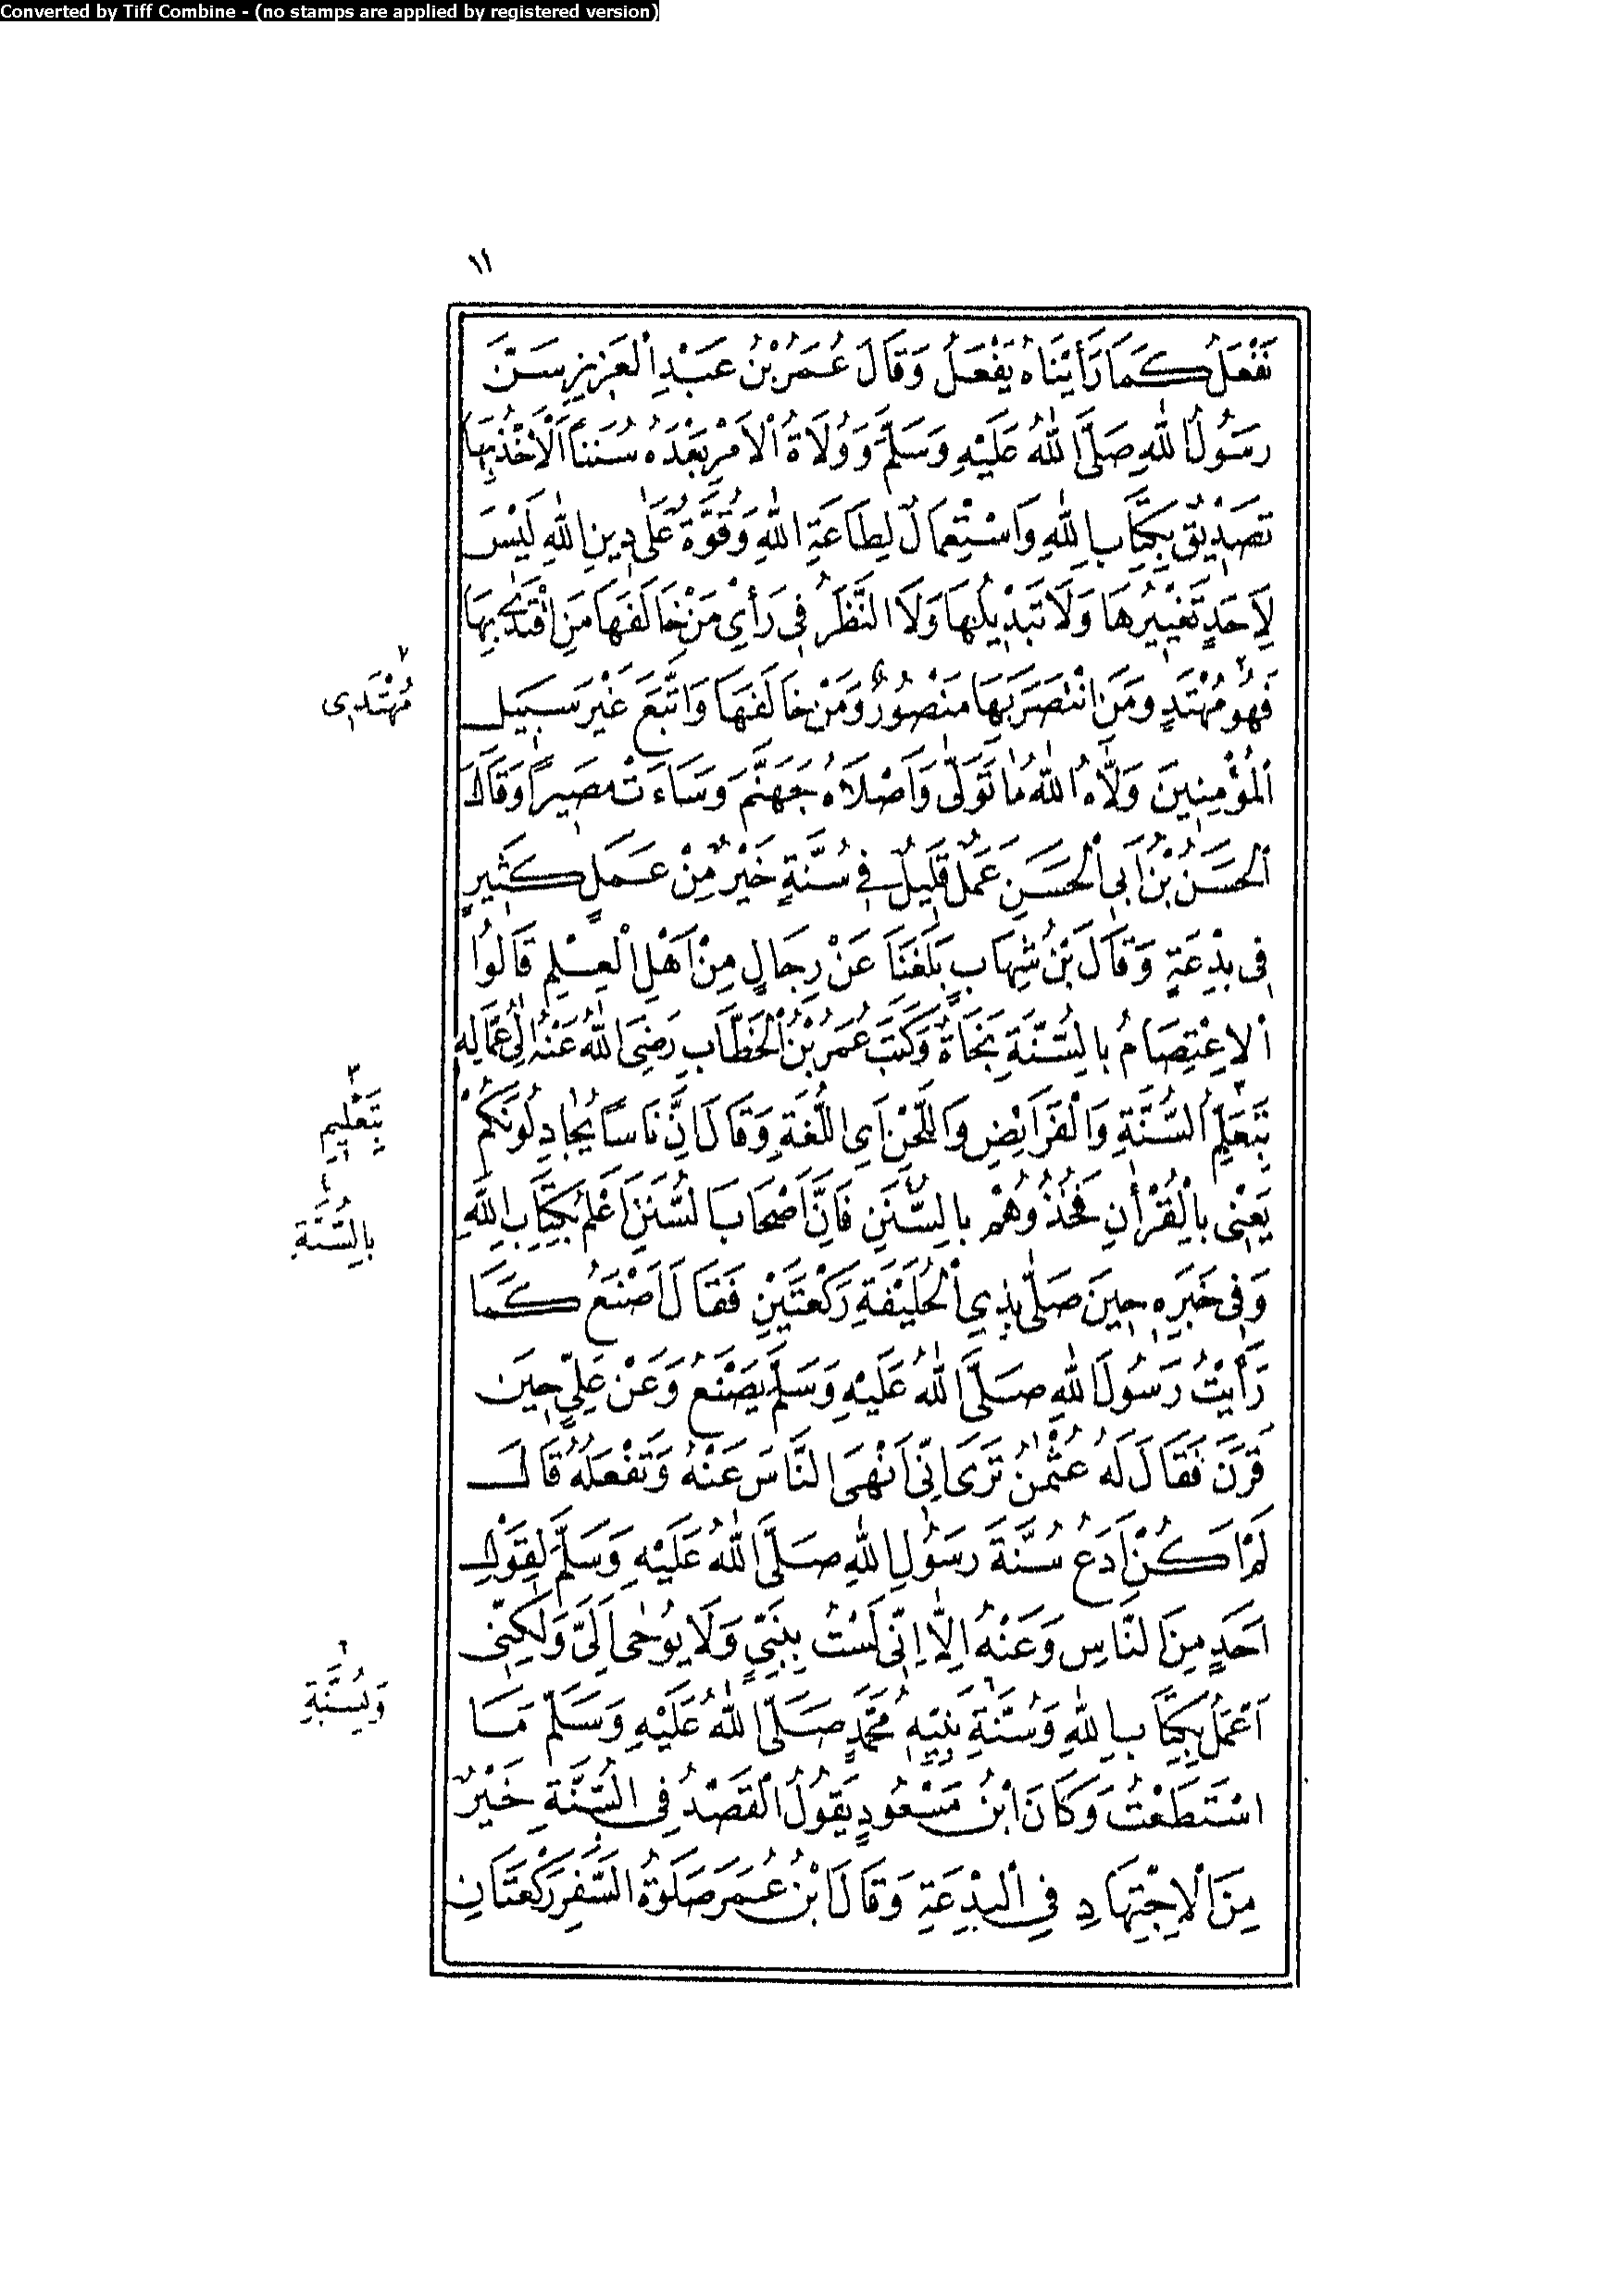 Converted by Tiff Combine - (no stamps are applied by registered version)
١١
نَفْعَلُ كَمَا رَأَيْنَاهُ يَفْعَلُ وَقَالَ عُمَرُ بْنُ عَبْدِ الْعَزِيزِ سَنَّ
رَسُولُ اللهِ صَلَّى اللهُ عَلَيْهِ وَسَلَّمَ وَوُلَاةُ الْاَمْرِ بَعْدَهُ سُنَناً اَلْاَخْذُ بِهَا
تَصْدِيقٌ بِكِتَابِ اللهِ وَاسْتِعْمَالٌ لِطَاعَةِ اللهِ وَقُوَّةٌ عَلَى دِينِ اللهِ لَيْسَ
لِاَحَدٍ تَغْيِيرُهَا وَلَا تَبْدِيلُهَا وَلَا النَّظَرُ فِى رَأْىِ مَنْ خَالَفَهَا مَنِ اقْتَدَى بِهَا
فَهُوَ مُهْتَدٍ وَمَنِ انْتَصَرَ بِهَا مَنْصُورٌ وَمَنْ خَالَفَهَا وَاتَّبَعَ غَيْرَ سَبِيلِ
مُهْتَدِى
اَلْمُؤْمِنِينَ وَلَّاهُ اللهُ مَا تَوَلَّى وَاَصْلَاهُ جَهَنَّمَ وَسَاءَتْ مَصِيراً وَقَالَ
اَلْحَسَنُ بْنُ اَبِى الْحَسَنِ عَمَلٌ قَلِيلٌ فِى سُنَّةٍ خَيْرٌ مِنْ عَمَلٍ كَثِيرٍ
فِى بِدْعَةٍ وَقَالَ بْنُ شِهَابٍ بَلَغَنَا عَنْ رِجَالٍ مِنْ اَهْلِ الْعِلْمِ قَالُوا
اَلْاِعْتِصَامُ بِالسُّنَّةِ نَجَاةٌ وَكَتَبَ عُمَرُ بْنُ الْخَطَّابِ رَضِىَ اللهُ عَنْهُ اِلَى عُمَّالِهِ
بِتَعَلُّمِ السُّنَّةِ وَالْفَرَائِضِ وَاللَّحْنِ اَىِ اللُّغَةِ وَقَالَ اِنَّ نَاساً يُجَادِلُونَكُمْ
٣
بِتَعْلِيمِ
يَعْنِى بِالْقُرْأٰنِ فَخُذُوهُمْ بِالسُّنَنِ فَاِنَّ اَصْحَابَ السُّنَنِ اَعْلَمُ بِكِتَابِ اللهِ
٤
بِالسُّنَّةِ
وَفِى خَبَرِهِ حِينَ صَلَّى بِذِى الْحُلَيْفَةِ رَكْعَتَيْنِ فَقَالَ اَصْنَعُ كَمَا
رَأَيْتُ رَسُولَ اللهِ صَلَّى اللهُ عَلَيْهِ وَسَلَّمَ يَصْنَعُ وَعَنْ عَلِىٍّ حِينَ
قَرَنَ فَقَالَ لَهُ عُثْمٰنُ تَرَى اَنِّى اَنْهَى النَّاسَ عَنْهُ وَتَفْعَلُهُ قَالَ
لَمْ اَكُنْ اَدَعُ سُنَّةَ رَسُولِ اللهِ صَلَّى اللهُ عَلَيْهِ وَسَلَّمَ لِقَوْلِ
اَحَدٍ مِنَ النَّاسِ وَعَنْهُ اَلَا اِنِّى لَسْتُ بِنَبِىٍّ وَلَا يُوحٰى اِلَىَّ وَلَكِنِّى
اَعْمَلُ بِكِتَابِ اللهِ وَسُنَّةِ نَبِيِّهِ مُحَمَّدٍ صَلَّى اللهُ عَلَيْهِ وَسَلَّمَ مَا
٦
وَبِسُنَّةِ
اسْتَطَعْتُ وَكَانَ ابْنُ مَسْعُودٍ يَقُولُ الْقَصْدُ فِى السُّنَّةِ خَيْرٌ
مِنَ الْاِجْتِهَادِ فِى الْبِدْعَةِ وَقَالَ ابْنُ عُمَرَ صَلٰوةُ السَّفَرِ رَكْعَتَانِ